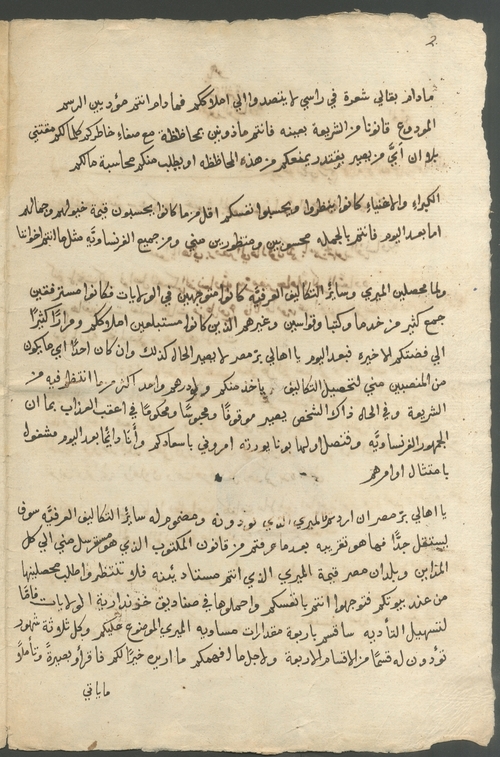 2
مادام بقالي شعرة في راسي لا يتصدوا الي املاككم فما دام انتم مؤديين الرسم
المودوع قانونا من الشريعة بعينه فانتم ماذونين بمحافظة مع صفاء خاطركم كلما لكم مقتني
بلا ان أيّ من يصير يقتدر يمنعكم من هذه المحافظه او يطلب منكم محاسبة مالكم
الكبراء والاغنياء كانوا ينظروا ويحسبوا نفسكم اقل من ما كانوا يحسبون قيمة خيولهم وجمالهم
اما بعد اليوم فانتم بالجمله محسوبين ومنظورين مني ومن جميع الفرنساويّه مثل ما انتم اخواننا
ولما محصلين الميري وساير التكاليف العرفيّه كانوا متوجهين في الولايات فكانوا مسترفقين
جمع كثير من خدما وكتبا وقواسين وغيرهم الذين كانوا مستبلعين املاككم ومرارًا كثيرًا
الي فضتكم الاخيره فبعد اليوم يا اهالي برّ مصر لا يصير الحال كذلك وان كان احدًا اي ما يكون
من المنصبين مني لتحصيل التكاليف ياخذ منكم ولو درهم واحد اكثر من ما انتظر فيه من
الشريعة وفي الحال ذاك الشخص يصير موقوفًا ومحبوسًا ومحكومًا في اعقب العذاب بما ان
الجمهور الفرنساويّه وقنصل اولها بونابورته امروني باسعادكم وأنا دائمًا بعد اليوم مشغول
بامتثال اوامرهم
يا اهالي برّ مصر ان اردتم الميري الذي تودونه ومضموم له ساير التكاليف العرفيّه سوف
يستقل جدًّا فها هو تقريبه بعد ما عرفتم من قانون المكتوب الذي هو مسترسل مني الي كل
المداين وبلدان مصر قيمة الميري الذي انتم مستاديّنه فلا تنتظروا طلب محصلينها
من عند بيوتكم فتوجهوا انتم بانفسكم واحملوها في صناديق خزندارية الولايات فاناّ
لتسهيل التأديه ساقسم باربعة مقدارات مساويه الميري الموضوع عليكم وكل ثلاثة شهور
تؤدون له قسمًا من الاقسام الاربعة ولاجل ما افهمكم ما اريده خيرًا لكم فاقرأو بصيرةً وتأملاً
ما ياتي